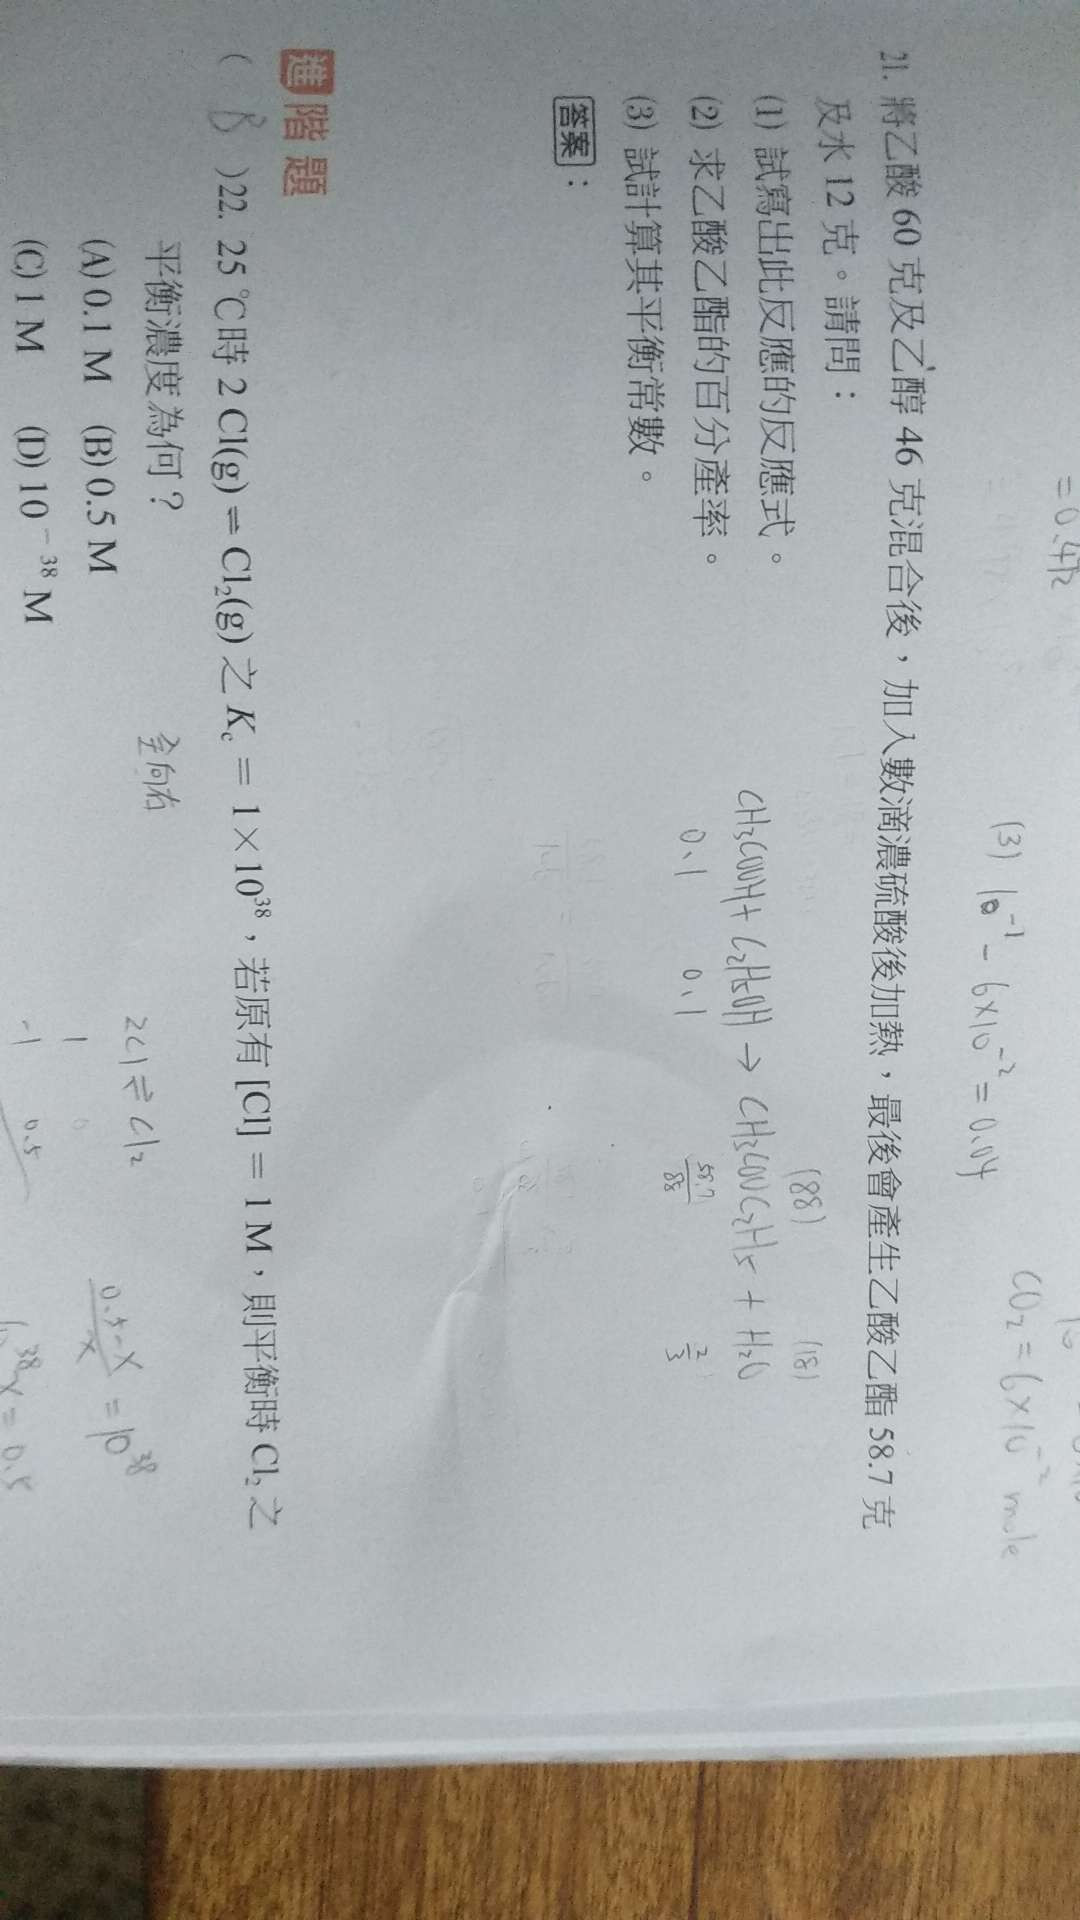 = 0.472
(3) 10⁻¹ - 6×10⁻² = 0.04
CO₂ = 6×10⁻² mole
21. 將乙酸 60 克及乙醇 46 克混合後，加入數滴濃硫酸後加熱，最後會產生乙酸乙酯 58.7 克
及水 12 克。請問：
(88) (18)
(1) 試寫出此反應的反應式。
CH₃COOH + C₂H₅OH → CH₃COOC₂H₅ + H₂O
(2) 求乙酸乙酯的百分產率。
0.1 0.1 58.7/88 2/3
(3) 試計算其平衡常數。
答案：
進階題
( B )22. 25 ℃時 2 Cl(g) ⇌ Cl₂(g) 之 Kc = 1×10³⁸，若原有 [Cl] = 1 M，則平衡時 Cl₂ 之
平衡濃度為何？
全向右
2Cl ⇌ Cl₂
(0.5-X)/X = 10³⁸
(A) 0.1 M (B) 0.5 M
1 0
(C) 1 M (D) 10⁻³⁸ M
-1 0.5
10³⁸X = 0.5